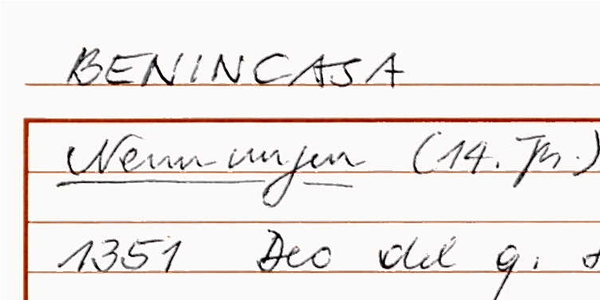 BENINCASA
Nennungen (14. Jh.)
1351 Deo del q.